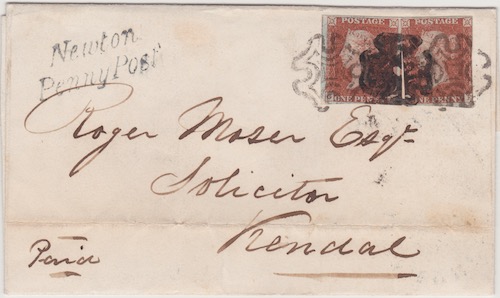 Newton
Penny Post
POSTAGE POSTAGE
ONE PENNY ONE PENNY
Roger Moser Esqr
Solicitor
Kendal
Paid